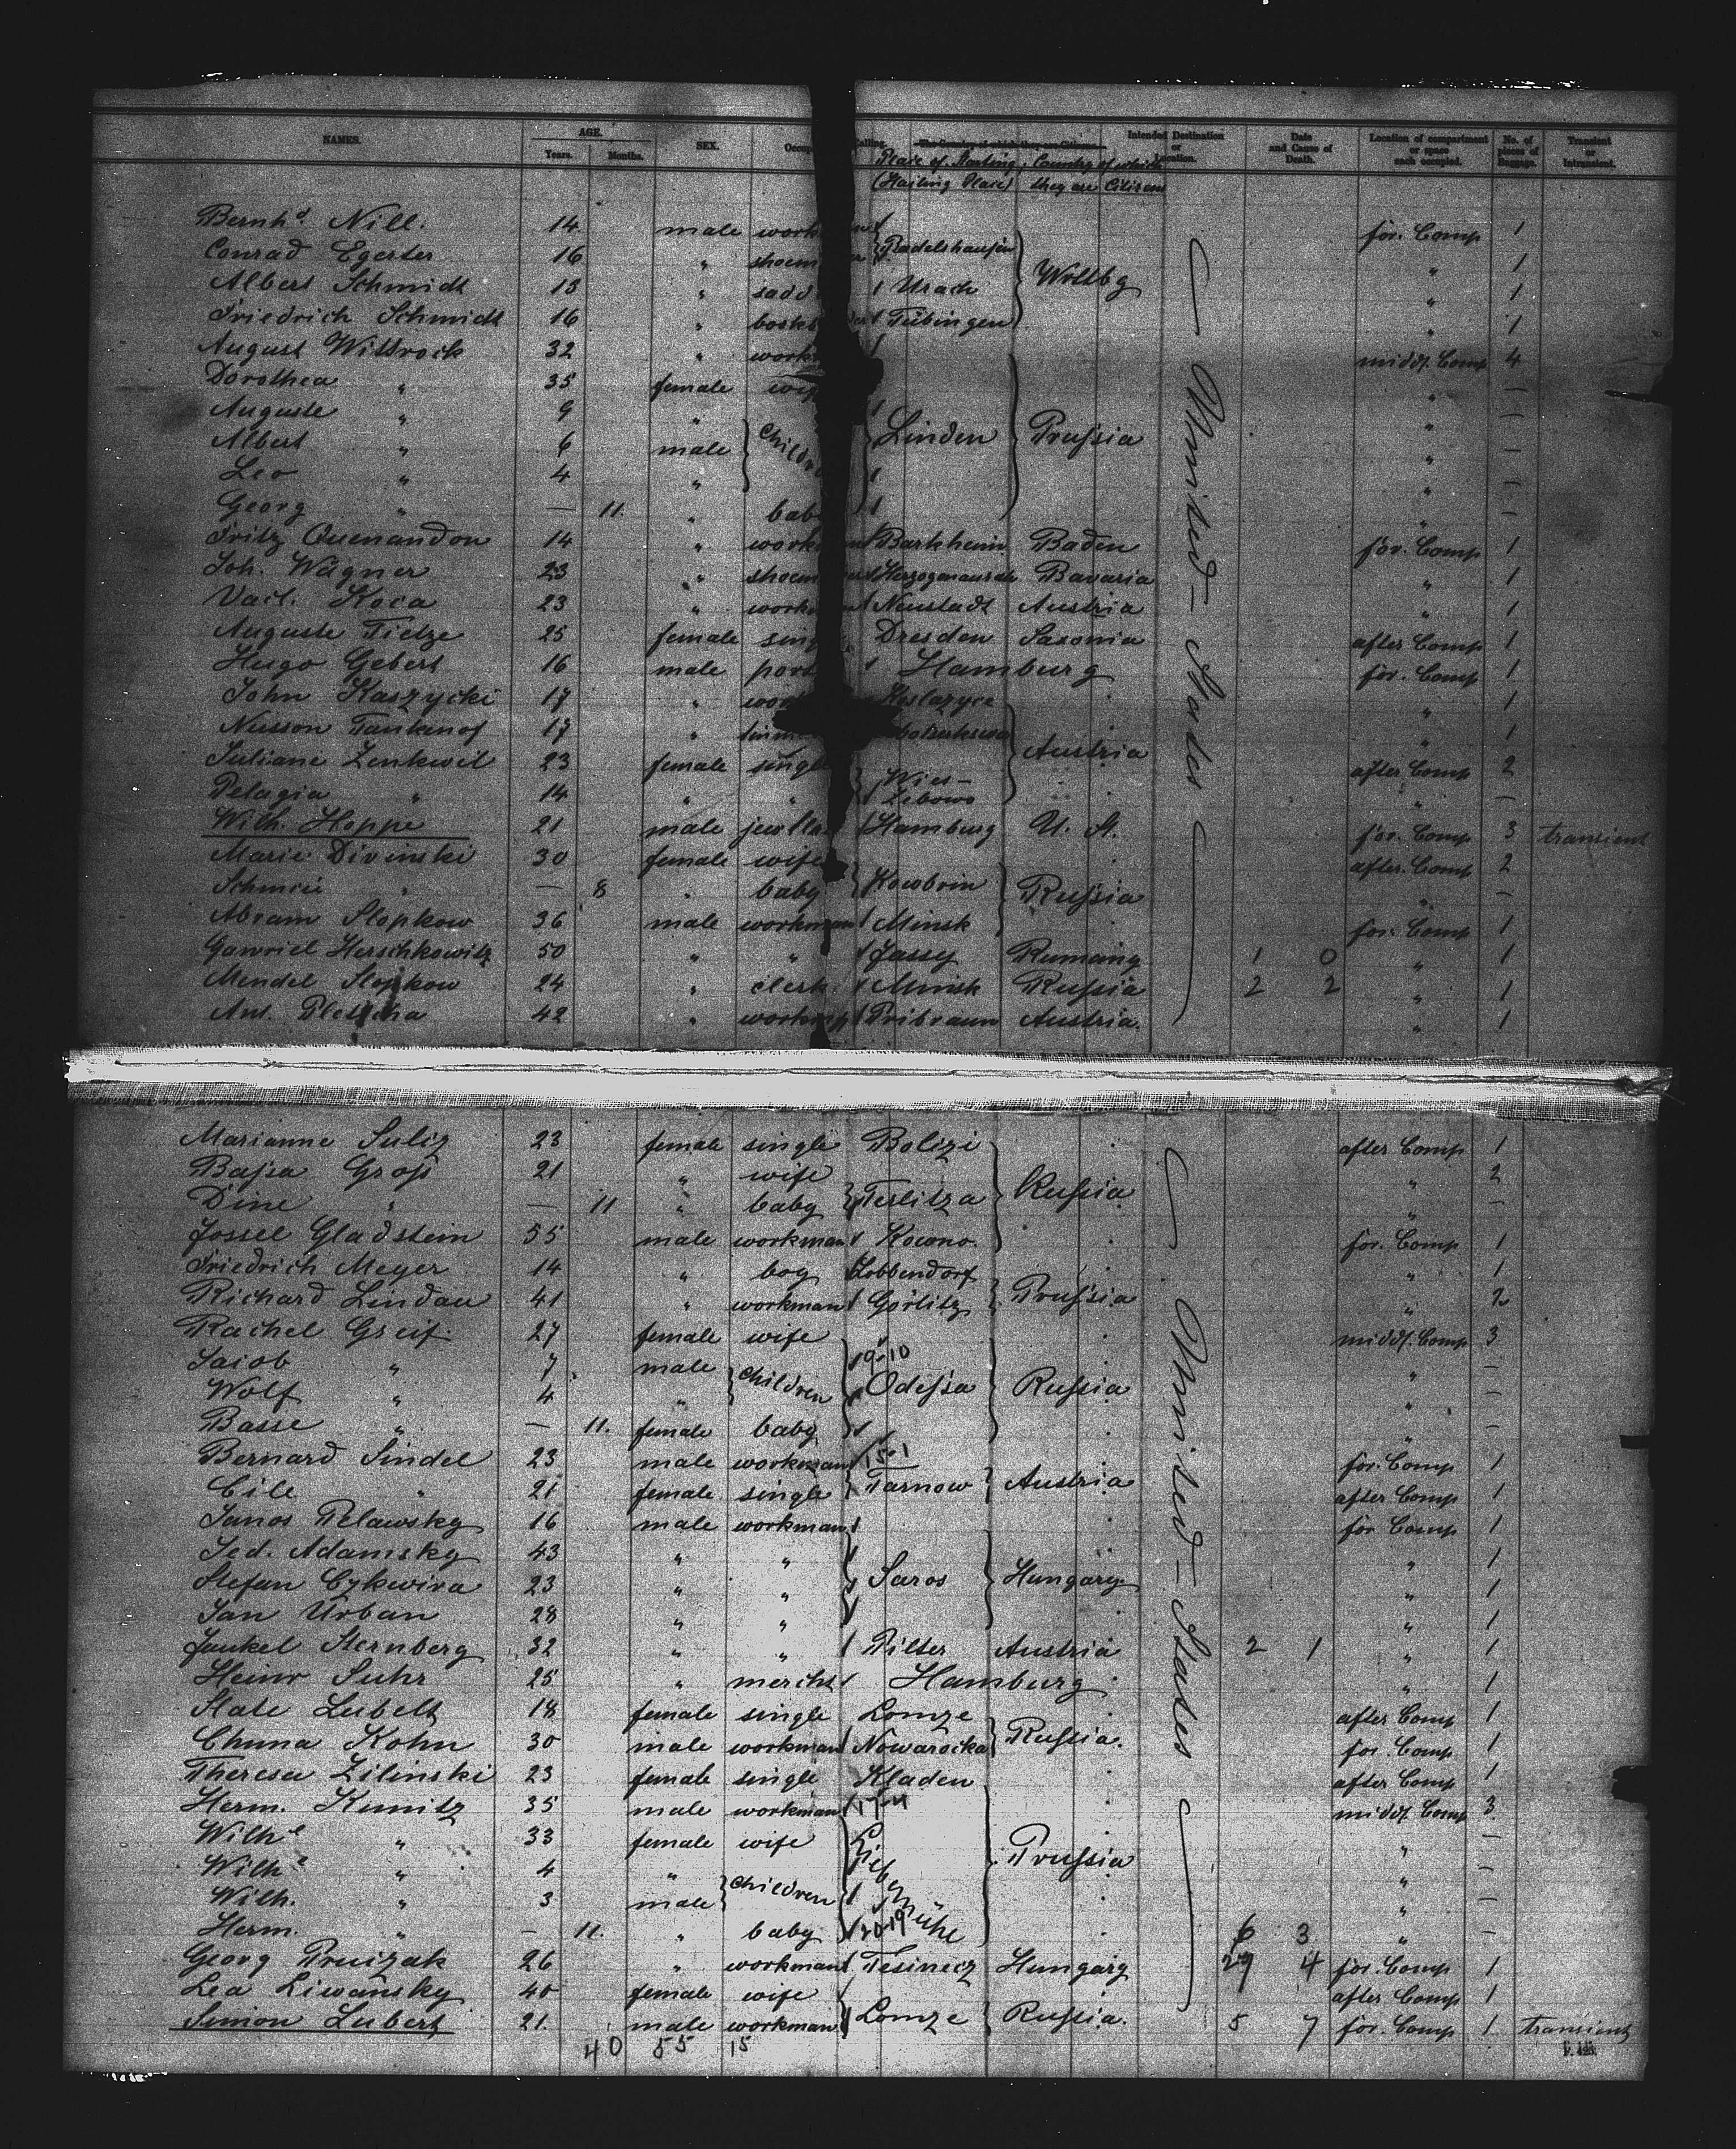 NAMES. AGE. Years. Months. SEX. Occup Calling. Intended Destination or Location. Date and Cause of Death. Location of compartment or space each occupied. No. of pieces of Baggage. Transient or Intransient.
Place of Starting, Country of which
(Hailing Place) they are Citizens
United States
Bernhd. Nill. 14 male work for. Comp 1
Conrad Egerter 16 " shoem Bodelshausen " 1
Albert Schmidt 13 " sadd Urach Wrttbg " 1
Friedrich Schmidt 16 " bookb Tübingen " 1
August Wittrock 32 " work middl. Comp 4
Dorothea " 35 female wife " —
Auguste " 9 " " —
Albert " 6 male Children Linden Prussia " —
Leo " 4 " " —
Georg " — 11. " baby " —
Fritz Quenandon 14 " work Barkheim Baden for. Comp 1
Joh. Wagner 23 " shoem Herzogenaurach Bavaria " 1
Vacl. Koca 23 " work Neustadt Austria " 1
Auguste Tietze 25 female sing Dresden Saxonia after Comp 1
Hugo Gebert 16 male port Hamburg for. Comp 1
John Kaszycki 17 " wor " 1
Nusson 17 " " 1
Juliane Zenkwil 23 female single Austria after Comp 2
Pelagia " 14 " " Wies- Zibowo " —
Wilh. Hoppe 21 male jewller Hamburg U. St. for. Comp 3 transient
Marie Divinski 30 female wife after Comp 2
Schmeie " — 8 " baby Kowbrin Russia " —
Abram Slopkow 36 male workman Minsk for. Comp 1
Gawriel Herschkowitz 50 " " Jassy Rumeiny 1 0 " 1
Mendel Slopkow 24 " clerk Minsk Russia 2 2 " 1
Ant. Pletscha 42 " workmn Pribraun Austria. " 1
United States
Marianne Suliz 23 female single Bolizi after Comp 1
Bassa Gross 21 " wife " 2
Dine " — 11 " baby Teslitza Russia " —
Jossel Gladstein 55 male workman Kowno. for. Comp 1
Friedrich Meyer 14 " boy Lobbendorf " 1
Richard Lindau 41 " workman Görlitz Prussia " 2
Rachel Greif 27 female wife middl. Comp 3
Jacob " 7 male 9-10 " —
Wolf " 4 " Children Odessa Russia " —
Basse " — 11. female baby " —
Bernard Sindel 23 male workman 15-1 for. Comp 1
Cile " 21 female single Tarnow Austria after Comp 1
Janos Pelawsky 16 male workman for Comp 1
Jed. Adamsky 43 " " " 1
Stefan Cykwira 23 " " Saros Hungary " 1
Jan Urban 28 " " " 1
Jankel Sternberg 32 " " Pilter Austria 2 1 " 1
Heinr Suhr 25 " mercht Hamburg " 1
Slate Lubelt 18 female single Lomze after Comp 1
Chuna Kohn 30 male workman Nowarocka Russia. for. Comp 1
Theresa Zilinski 23 female single Kladen after Comp 1
Herm. Kunitz 35 male workman 17-11 middl. Comp 3
Wilhe " 33 female wife Liebemühl Prussia " —
Wilhe " 4 " " —
Wilh. " 3 male Children " —
Herm. " — 11. " baby 20-19 6 3 " —
Georg Pruizak 26 " workman Tesinecz Hungary 29 4 for. Comp 1
Lea Liwansky 40 female wife after Comp 1
Simon Lubert 21. male workman Lomze Russia. 5 7 for. Comp 1 transient
40 55 15